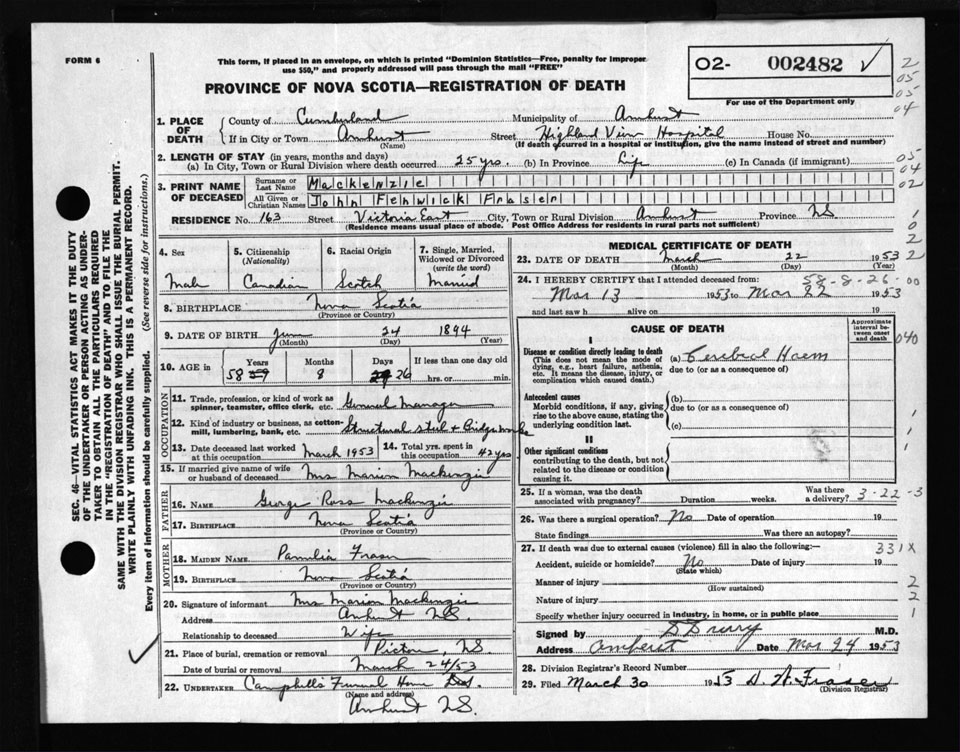 FORM 6
This form, if placed in an envelope, on which is printed "Dominion Statistics—Free, penalty for improper use $50," and properly addressed will pass through the mail "FREE"
02- 002482
For use of the Department only
PROVINCE OF NOVA SCOTIA—REGISTRATION OF DEATH
SEC. 46—VITAL STATISTICS ACT MAKES IT THE DUTY OF THE UNDERTAKER OR PERSON ACTING AS UNDERTAKER TO OBTAIN ALL THE PARTICULARS REQUIRED IN THE "REGISTRATION OF DEATH" AND TO FILE THE SAME WITH THE DIVISION REGISTRAR WHO SHALL ISSUE THE BURIAL PERMIT.
WRITE PLAINLY WITH UNFADING INK. THIS IS A PERMANENT RECORD.
Every item of information should be carefully supplied. (See reverse side for instructions.)
1. PLACE OF DEATH
County of Cumberland Municipality of Amherst
If in City or Town Amherst (Name) Street Highland View Hospital House No.
(If death occurred in a hospital or institution, give the name instead of street and number)
2. LENGTH OF STAY (in years, months and days)
(a) In City, Town or Rural Division where death occurred 25 yrs. (b) In Province Life (c) In Canada (if immigrant)
3. PRINT NAME OF DECEASED
Surname or Last Name Mackenzie
All Given or Christian Names John Fenwick Fraser
RESIDENCE No. 163 Street Victoria East City, Town or Rural Division Amherst Province NS
(Residence means usual place of abode. Post Office Address for residents in rural parts not sufficient)
4. Sex Male
5. Citizenship (Nationality) Canadian
6. Racial Origin Scotch
7. Single, Married, Widowed or Divorced (write the word) Married
8. BIRTHPLACE Nova Scotia
(Province or Country)
9. DATE OF BIRTH 24 1894
(Month) (Day) (Year)
10. AGE in Years 58 Months 8 Days 26 If less than one day old hrs. or min.
OCCUPATION
11. Trade, profession, or kind of work as spinner, teamster, office clerk, etc. General Manager
12. Kind of industry or business, as cotton-mill, lumbering, bank, etc. Structural steel & Bridge works
13. Date deceased last worked at this occupation March 1953 14. Total yrs. spent in this occupation 42 yrs
15. If married give name of wife or husband of deceased Mrs Marion Mackenzie
FATHER
16. NAME George Ross Mackenzie
17. BIRTHPLACE Nova Scotia
(Province or Country)
MOTHER
18. MAIDEN NAME Pamilia Fraser
19. BIRTHPLACE Nova Scotia
(Province or Country)
20. Signature of informant Mrs Marion Mackenzie
Address Amherst NS.
Relationship to deceased Wife
21. Place of burial, cremation or removal Pictou, NS.
Date of burial or removal March 24/53
22. UNDERTAKER Campbell's Funeral Home Ltd.
(Name and address)
Amherst NS.
MEDICAL CERTIFICATE OF DEATH
23. DATE OF DEATH March 22 1953
(Month) (Day) (Year)
24. I HEREBY CERTIFY that I attended deceased from: 58-8-26
Mar 13 1953 to Mar 22 1953
and last saw h alive on 19
CAUSE OF DEATH
Approximate interval between onset and death
I
Disease or condition directly leading to death
(This does not mean the mode of dying, e.g., heart failure, asthenia, etc. It means the disease, injury, or complication which caused death.)
(a) Cerebral Haem
due to (or as a consequence of)
Antecedent causes
Morbid conditions, if any, giving rise to the above cause, stating the underlying condition last.
(b)
due to (or as a consequence of)
(c)
II
Other significant conditions
contributing to the death, but not related to the disease or condition causing it.
25. If a woman, was the death associated with pregnancy? Duration weeks. Was there a delivery? 3-22-3
26. Was there a surgical operation? No Date of operation 19
State findings Was there an autopsy?
27. If death was due to external causes (violence) fill in also the following:— 331X
Accident, suicide or homicide? No Date of injury 19
(State which)
Manner of injury
(How sustained)
Nature of injury
Specify whether injury occurred in industry, in home, or in public place
Signed by D Drury M.D.
Address Amherst Date Mar 24 1953
28. Division Registrar's Record Number
29. Filed March 30 1953 D. A. Fraser
(Division Registrar)
2
05
05
04
05
04
02
1
0
2
2
00
040
1
1
2
2
1